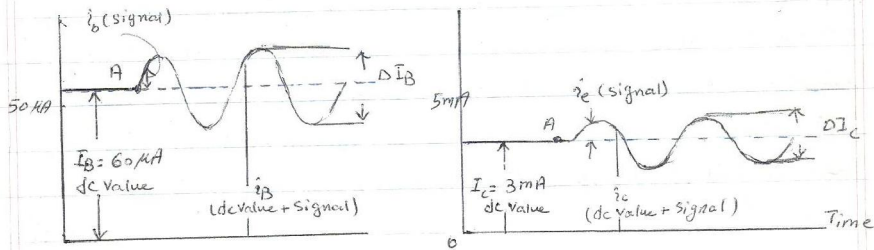 i_b (signal)
A
ΔI_B
50 μA
I_B = 60 μA
dc value
i_B
(dc value + signal)
5mA
i_e (signal)
A
ΔI_c
I_c = 3mA
dc value
i_c
(dc value + signal)
Time
0